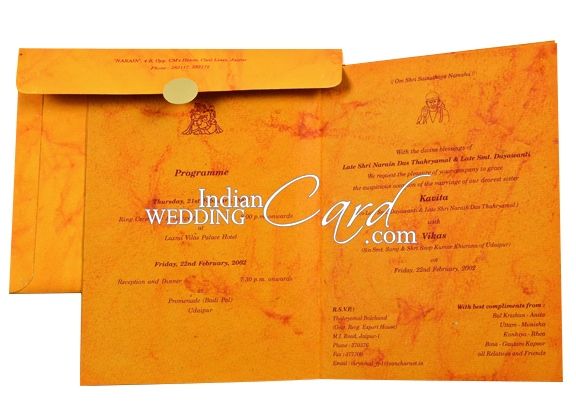 "NARAIN", 4 B, Opp. CM's House, Civil Lines, Jaipur
Phone :
Programme
Thursday, 21st
Ring
7:00 p.m. onwards
at
Laxmi Vilas Palace Hotel
Friday, 22nd February, 2002
Reception and Dinner 7:30 p.m. onwards
at
Promenade (Badi Pal)
Udaipur
Indian
WEDDING Card
.com
// Om Shri Sainathaya Namaha //
With the divine blessings of
Late Shri Narain Das Thahryamal & Late Smt. Dayawanti
We request the pleasure of your company to grace
the auspicious occasion of the marriage of our dearest sister
Kavita
Dayawanti & Late Shri Narain Das Thahryamal)
with
Vikas
(So Smt. Saroj & Shri Roop Kumar Khurana of Udaipur)
on
Friday, 22nd February, 2002
at Udaipur
R.S.V.P.:
Thahryamal Balchand
(Govt. Recg. Export House)
M.I. Road, Jaipur-1
Phone : 370376
Fax : 377709
Email :
With best compliments from :
Bal Krishan - Anita
Uttam - Monisha
Kanhiya - Bhea
Bina - Gautam Kapoor
all Relatives and Friends